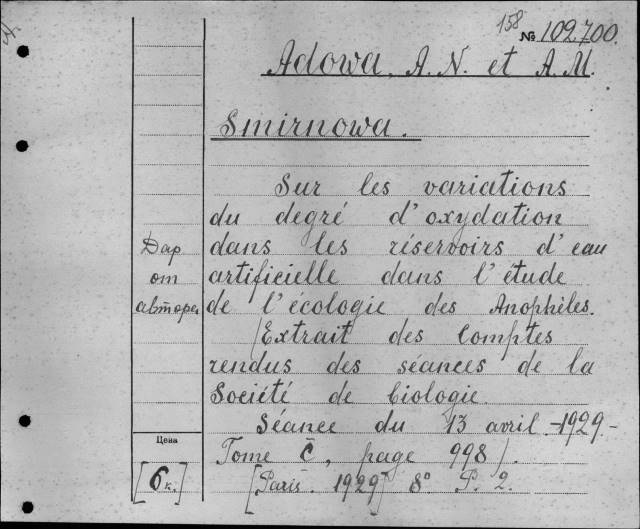 158
№ 102.700.
Adowa, A. N. et A. M.
Smirnowa.
Sur les variations
du degré d'oxydation
Дар dans les réservoirs d'eau
от artificielle dans l'étude
автора de l'écologie des Anophèles.
/Extrait des Comptes
rendus des séances de la
Société de biologie
Séance du 13 avril -1929.-
Цена
Tome C, page 998/.
[6 к.] [Paris. 1929] 8° P. 2.